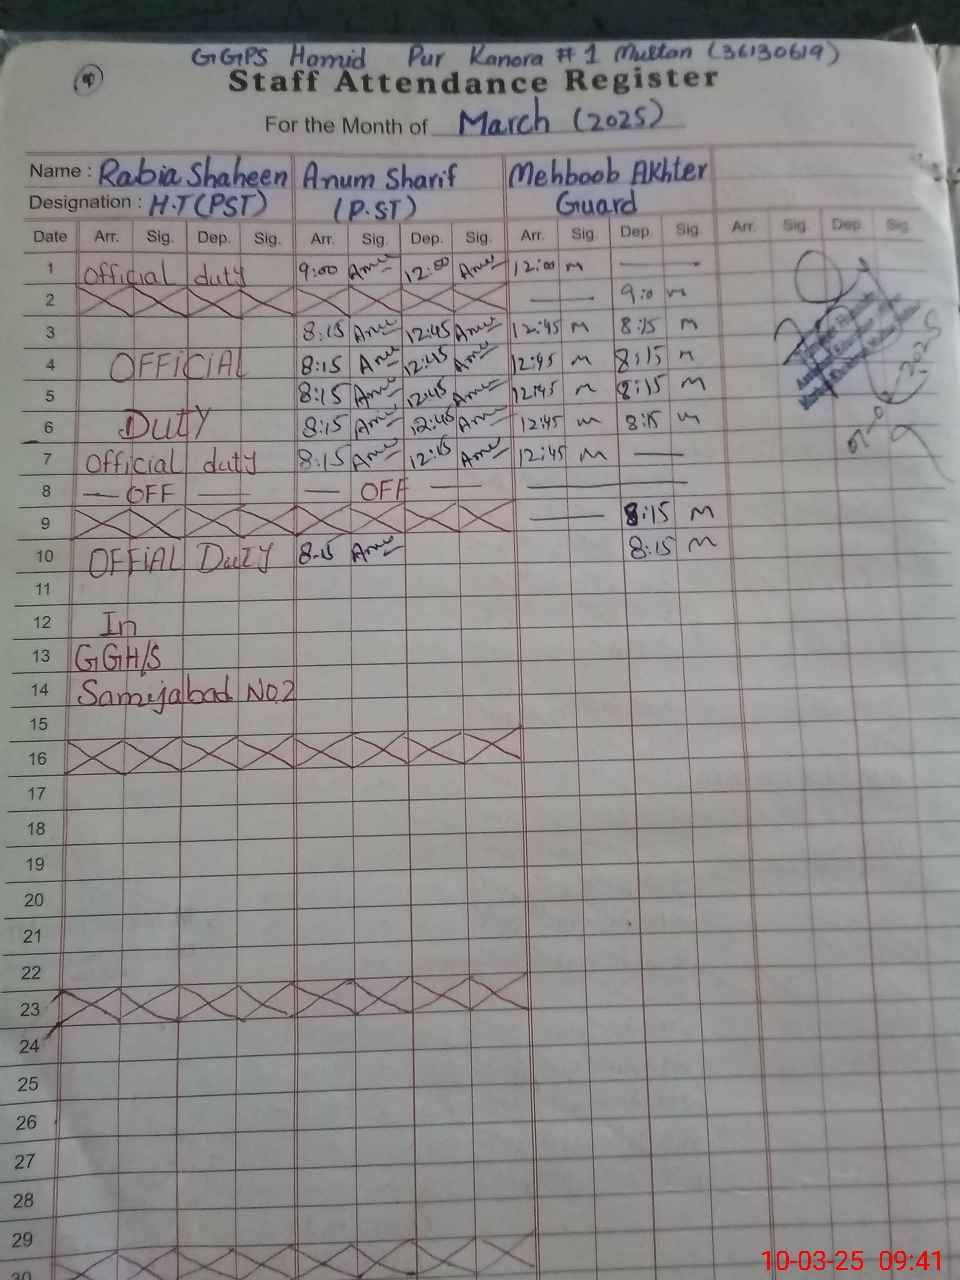 GGPS Hamid Pur Kanora # 1 Multan (36130619)
Staff Attendance Register
For the Month of March (2025)
Name : Rabia Shaheen Anum Sharif Mehboob Akhter
Designation : H.T (PST) (P.ST) Guard
Date Arr. Sig. Dep. Sig. Arr. Sig. Dep. Sig. Arr. Sig. Dep. Sig. Arr. Sig. Dep. Sig.
1 Official duty 9:00 12:00 12:00 m
2 9:0 m
3 8:15 12:45 12:45 m 8:15 m
4 OFFICIAL 8:15 12:45 12:45 m 8:15 m
5 8:15 12:45 12:45 m 8:15 m
6 Duty 8:15 12:45 12:45 m 8:15 m
7 Official duty 8:15 12:15 12:45 m
8 — OFF — — OFF —
9 8:15 m
10 OFFIAL Duty 8-15 8:15 m
11
12 In
13 GGH/S
14 Samijabad No.2
15
16
17
18
19
20
21
22
23
24
25
26
27
28
29
30
10-03-25 09:41